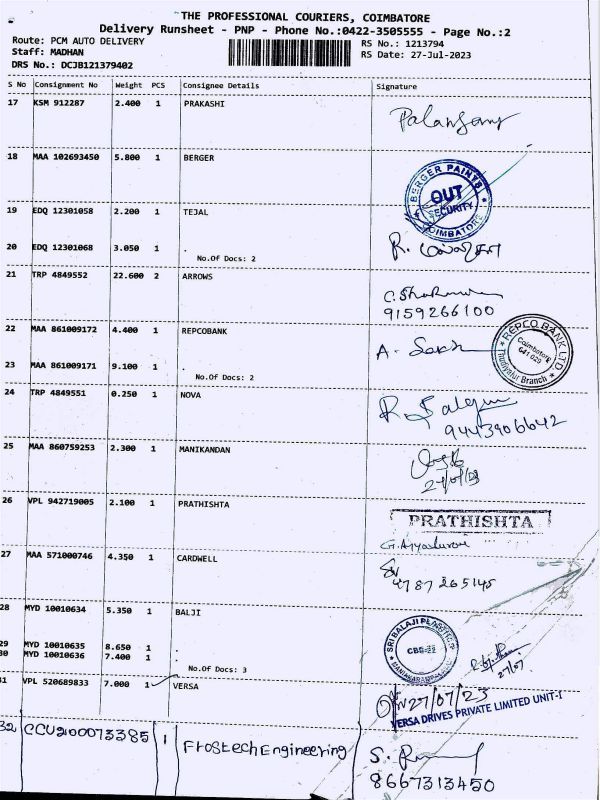 THE PROFESSIONAL COURIERS, COIMBATORE
Delivery Runsheet - PNP - Phone No.:0422-3505555 - Page No.:2
Route: PCM AUTO DELIVERY
RS No.: 1213794
Staff: MADHAN
RS Date: 27-Jul-2023
DRS No.: DCJB121379402
S No Consignment No Weight PCS Consignee Details Signature
17 KSM 912287 2.400 1 PRAKASHI
18 MAA 102693450 5.800 1 BERGER
BERGER PAINTS
OUT
SECURITY
COIMBATORE
19 EDQ 12301058 2.200 1 TEJAL
20 EDQ 12301068 3.050 1 .
No.Of Docs: 2
R.
21 TRP 4849552 22.600 2 ARROWS
9159266100
22 MAA 861009172 4.400 1 REPCOBANK
REPCO BANK LTD
Coimbatore
641 029
Branch
23 MAA 861009171 9.100 1 .
No.Of Docs: 2
24 TRP 4849551 0.250 1 NOVA
9443906642
25 MAA 860759253 2.300 1 MANIKANDAN
26 VPL 942719005 2.100 1 PRATHISHTA
PRATHISHTA
27 MAA 571000746 4.350 1 CARDWELL
8787265145
28 MYD 10010634 5.350 1 BALJI
CBE-22
29 MYD 10010635 8.650 1 .
30 MYD 10010636 7.400 1 .
27/07
No.Of Docs: 3
31 VPL 520689833 7.000 1 VERSA
27/07/23
VERSA DRIVES PRIVATE LIMITED UNIT-I
32 CCU200073385 1 Frostech Engineering
8667313450